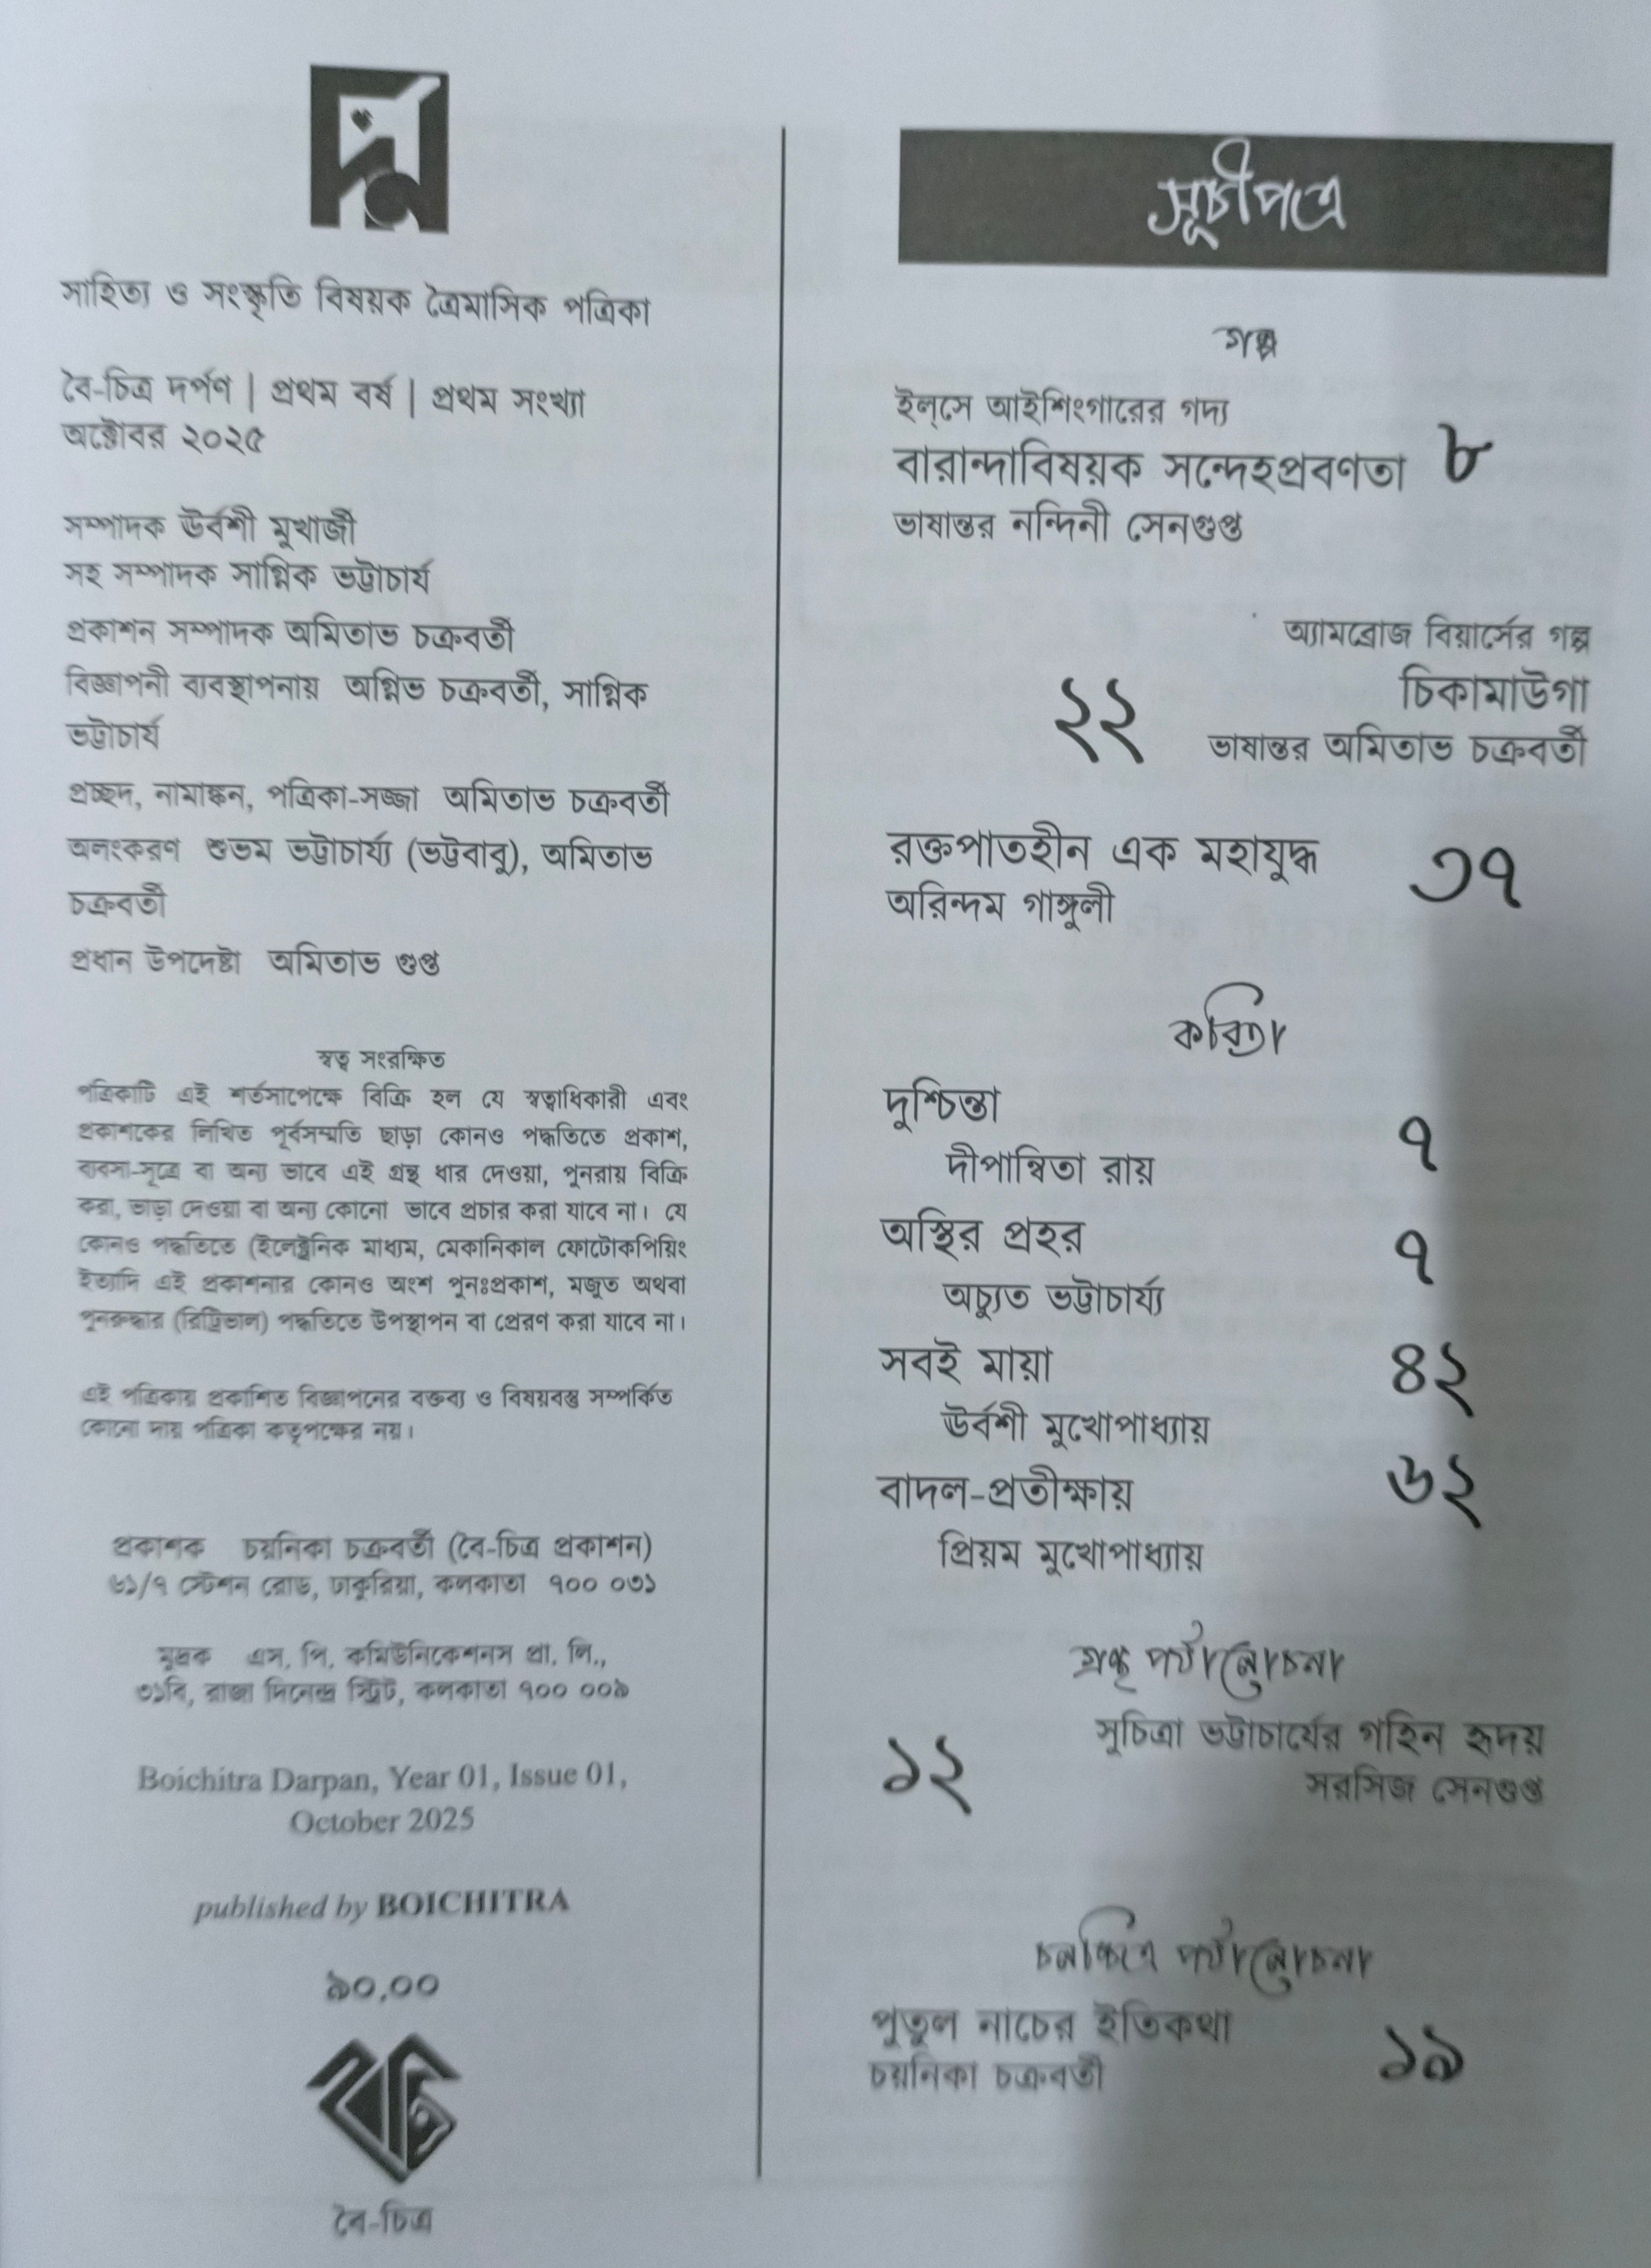 সাহিত্য ও সংস্কৃতি বিষয়ক ত্রৈমাসিক পত্রিকা
বৈ-চিত্র দর্পণ | প্রথম বর্ষ | প্রথম সংখ্যা
অক্টোবর ২০২৫
সম্পাদক ঊর্বশী মুখার্জী
সহ সম্পাদক সাগ্নিক ভট্টাচার্য
প্রকাশন সম্পাদক অমিতাভ চক্রবর্তী
বিজ্ঞাপনী ব্যবস্থাপনায় অগ্নিভ চক্রবর্তী, সাগ্নিক
ভট্টাচার্য
প্রচ্ছদ, নামাঙ্কন, পত্রিকা-সজ্জা অমিতাভ চক্রবর্তী
অলংকরণ শুভম ভট্টাচার্য্য (ভট্টবাবু), অমিতাভ
চক্রবর্তী
প্রধান উপদেষ্টা অমিতাভ গুপ্ত
স্বত্ব সংরক্ষিত
পত্রিকাটি এই শর্তসাপেক্ষে বিক্রি হল যে স্বত্বাধিকারী এবং
প্রকাশকের লিখিত পূর্বসম্মতি ছাড়া কোনও পদ্ধতিতে প্রকাশ,
ব্যবসা-সূত্রে বা অন্য ভাবে এই গ্রন্থ ধার দেওয়া, পুনরায় বিক্রি
করা, ভাড়া দেওয়া বা অন্য কোনো ভাবে প্রচার করা যাবে না। যে
কোনও পদ্ধতিতে (ইলেক্ট্রনিক মাধ্যম, মেকানিকাল ফোটোকপিয়িং
ইত্যাদি এই প্রকাশনার কোনও অংশ পুনঃপ্রকাশ, মজুত অথবা
পুনরুদ্ধার (রিট্রিভাল) পদ্ধতিতে উপস্থাপন বা প্রেরণ করা যাবে না।
এই পত্রিকায় প্রকাশিত বিজ্ঞাপনের বক্তব্য ও বিষয়বস্তু সম্পর্কিত
কোনো দায় পত্রিকা কতৃপক্ষের নয়।
প্রকাশক চয়নিকা চক্রবর্তী (বৈ-চিত্র প্রকাশন)
৬১/৭ স্টেশন রোড, ঢাকুরিয়া, কলকাতা ৭০০ ০৩১
মুদ্রক এস. পি. কমিউনিকেশনস প্রা. লি.,
৩১বি, রাজা দিনেন্দ্র স্ট্রিট, কলকাতা ৭০০ ০০৯
Boichitra Darpan, Year 01, Issue 01,
October 2025
published by BOICHITRA
৯০.০০
বৈ-চিত্র
সূচীপত্র
গল্প
ইল্‌সে আইশিংগারের গদ্য
বারান্দাবিষয়ক সন্দেহপ্রবণতা ৮
ভাষান্তর নন্দিনী সেনগুপ্ত
অ্যামব্রোজ বিয়ার্সের গল্প
চিকামাউগা
২২
ভাষান্তর অমিতাভ চক্রবর্তী
রক্তপাতহীন এক মহাযুদ্ধ ৩৭
অরিন্দম গাঙ্গুলী
কবিতা
দুশ্চিন্তা ৭
দীপান্বিতা রায়
অস্থির প্রহর ৭
অচ্যুত ভট্টাচার্য্য
সবই মায়া ৪২
ঊর্বশী মুখোপাধ্যায়
বাদল-প্রতীক্ষায় ৬২
প্রিয়ম মুখোপাধ্যায়
গ্রন্থ পর্যালোচনা
সুচিত্রা ভট্টাচার্যের গহিন হৃদয়
১২
সরসিজ সেনগুপ্ত
চলচ্চিত্র পর্যালোচনা
পুতুল নাচের ইতিকথা ১৯
চয়নিকা চক্রবর্তী